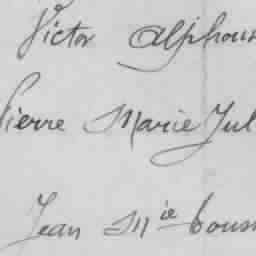 Victor Alphous
Pierre Marie Jul
Jean Mie tous